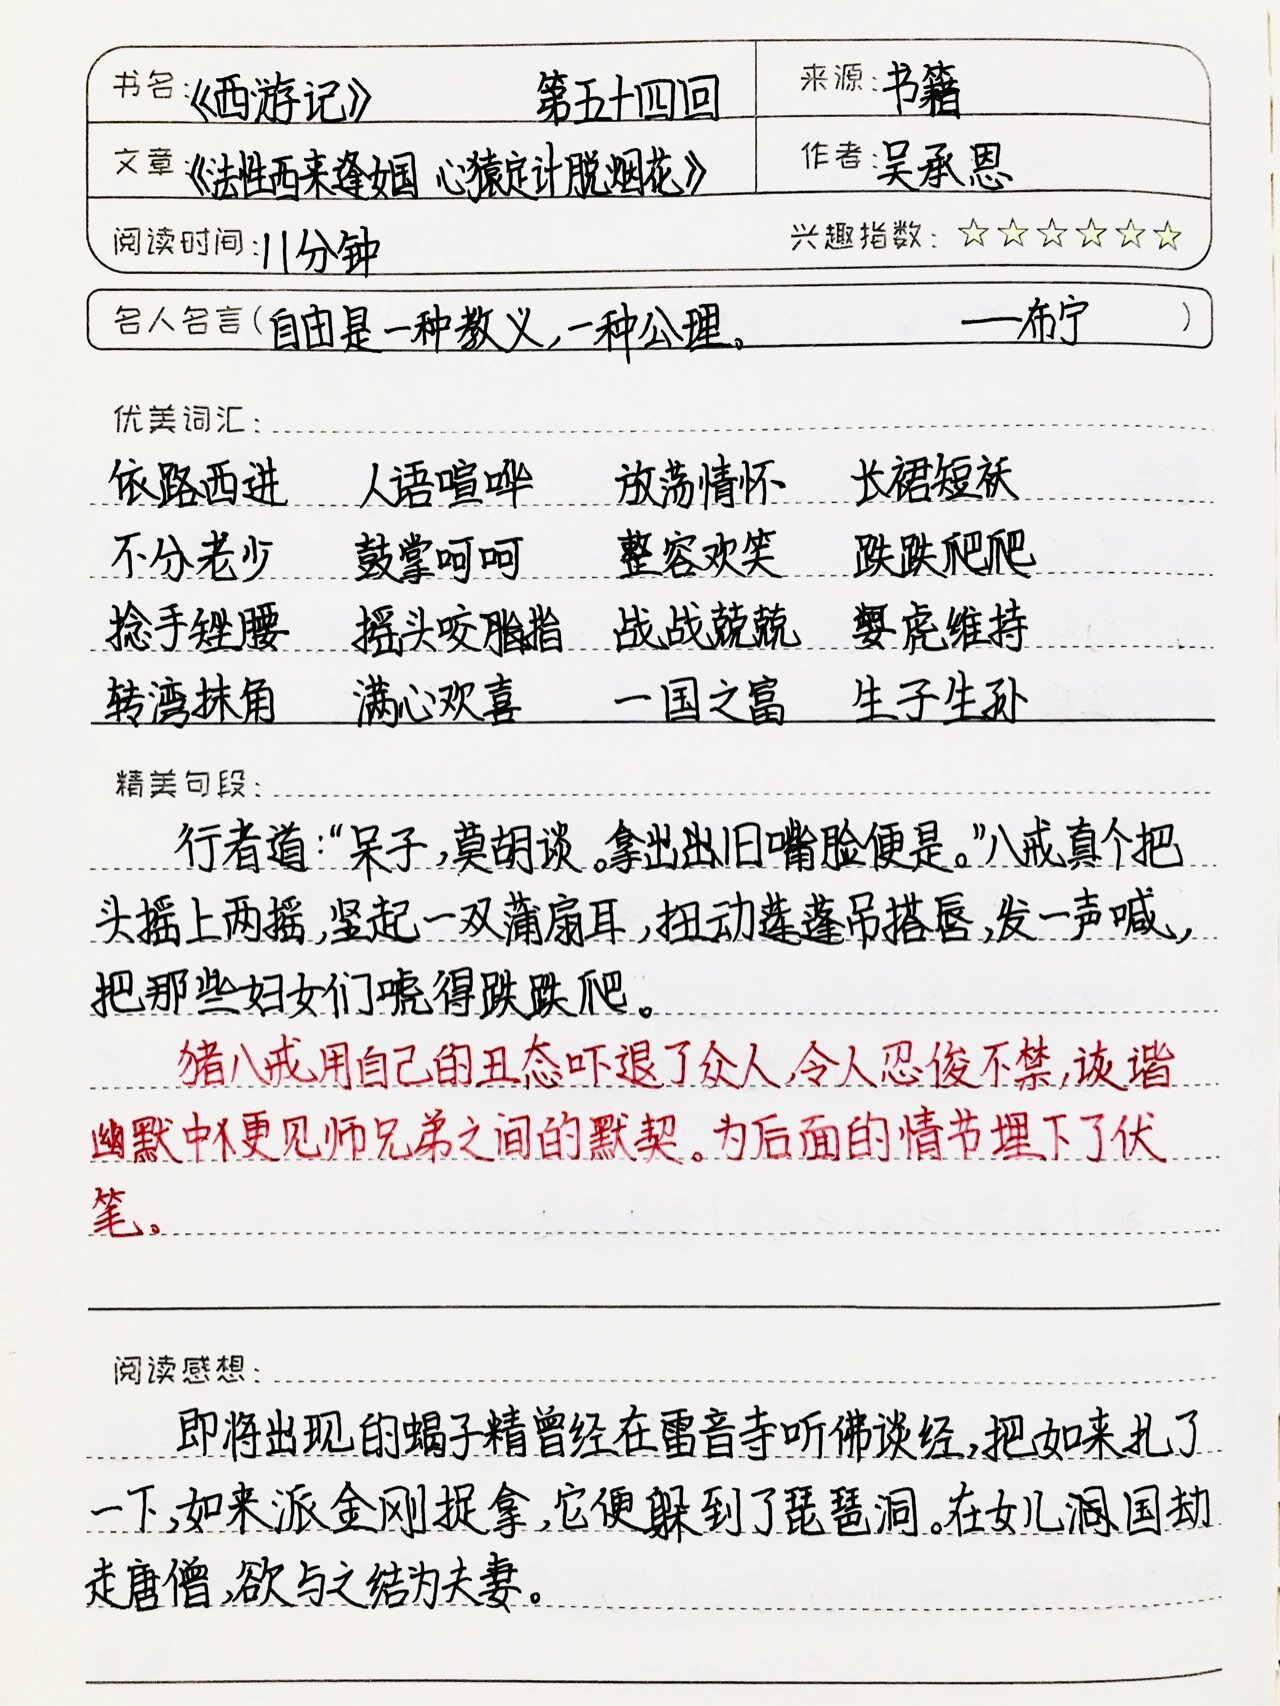 书名:《西游记》 第五十四回 来源:书籍
文章:《法性西来逢女国 心猿定计脱烟花》 作者:吴承恩
阅读时间:11分钟 兴趣指数:☆☆☆☆☆☆
名人名言(自由是一种教义,一种公理。 ——布宁)
优美词汇:
依路西进 人语喧哗 放荡情怀 长裙短袄
不分老少 鼓掌呵呵 整容欢笑 跌跌爬爬
捻手矬腰 摇头咬指 战战兢兢 婴虎维持
转湾抹角 满心欢喜 一国之富 生子生孙
精美句段:
行者道:“呆子,莫胡谈。拿出出旧嘴脸便是。”八戒真个把
头摇上两摇,竖起一双蒲扇耳,扭动莲蓬吊搭唇,发一声喊,
把那些妇女们唬得跌跌爬。
猪八戒用自己的丑态吓退了众人,令人忍俊不禁,诙谐
幽默中不更见师兄弟之间的默契。为后面的情节埋下了伏
笔。
阅读感想:
即将出现的蝎子精曾经在雷音寺听佛谈经,把如来扎了
一下,如来派金刚捉拿,它便躲到了琵琶洞。在女儿国劫
走唐僧,欲与之结为夫妻。